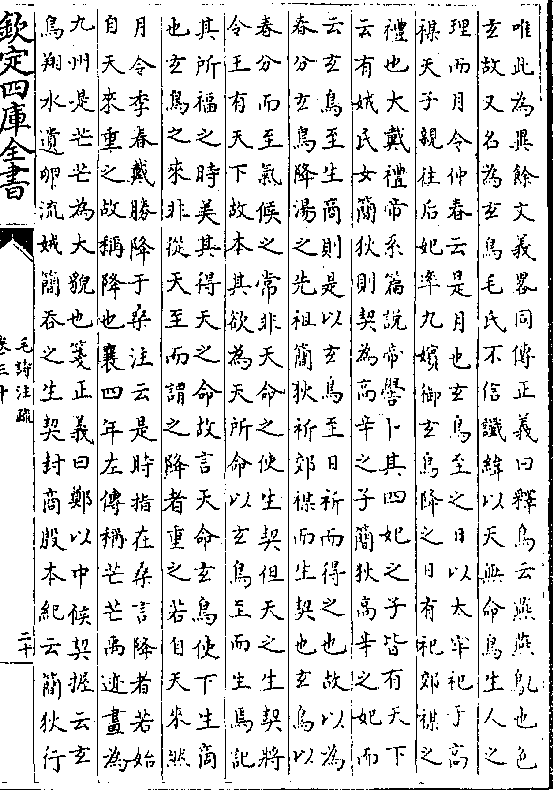 唯此為異餘文義畧同傳正義曰釋鳥云燕燕鳦也色
玄故又名為玄鳥毛氏不信讖緯以天無命鳥生人之
理而月令仲春云是月也玄鳥至之日以太牢祀于高
禖天子親往后妃率九嬪御玄鳥降之日有祀郊禖之
禮也大戴禮帝系篇說帝嚳卜其四妃之子皆有天下
云有娀氏女簡狄則契為高辛之子簡狄高辛之妃而
云玄鳥至生商則是以玄鳥至日祈而得之也故以為
春分玄鳥降湯之先祖簡狄祈郊禖而生契也玄鳥以
春分而至氣候之常非天命之使生契但天之生契將
令王有天下故本其欲為天所命以玄鳥至而生焉記
其所福之時美其得天之命故言天命玄鳥使下生商
也玄鳥之來非從天至而謂之降者重之若自天來然
月令季春戴勝降于桑注云是時指在桑言降者若始
自天來重之故稱降也襄四年左傳稱芒芒禹迹畫為
九州是芒芒為大貌也箋正義曰鄭以中候契握云玄
鳥翔水遺卵流娀簡吞之生契封商殷本紀云簡狄行
欽定四庫全書
毛詩注疏
卷三十
二十